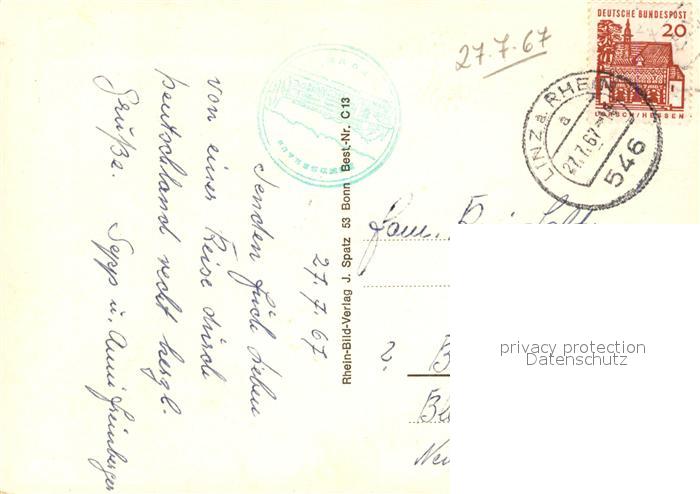 27.7.67
DEUTSCHE BUNDESPOST
20
LORSCH/HESSEN
LINZ a. RHEIN
a
27.7.67
546
27. 7. 67
Senden Euch Lieben
von einer Reise durch
Deutschland recht herzl.
Grüße. Sepp u. Anni
Rhein-Bild-Verlag J. Spatz 53 Bonn Best.-Nr. C13
Fam.
privacy protection
Datenschutz